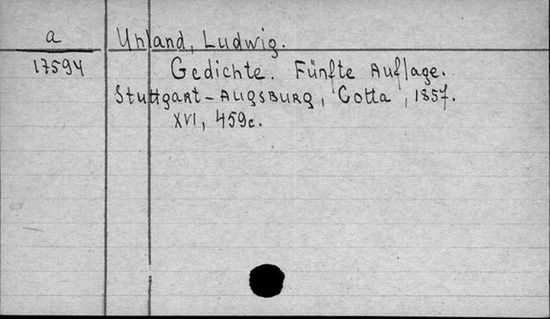 a
17594
Uhland, Ludwig.
Gedichte. Fünfte Auflage.
Stuttgart-Augsburg, Cotta, 1857.
XVI, 459c.